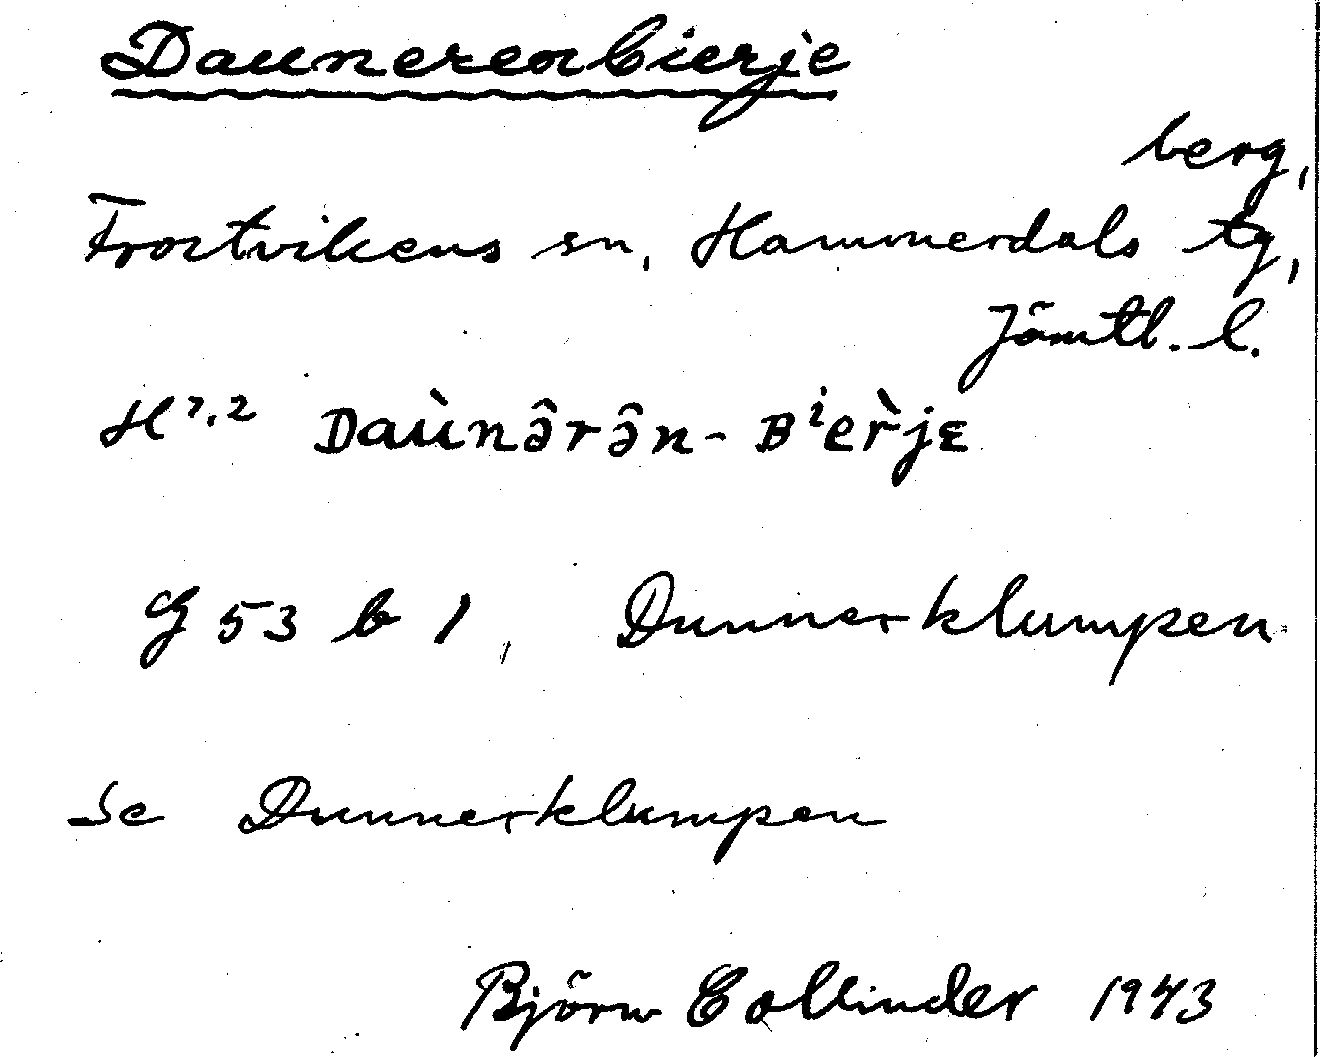 Daunerenbierje
berg,
Frostvikens sn, Hammerdals tg,
Jämtl. l.
H 7.2 Daùnə̂rə̂n-Bⁱer̀jɛ
G 53 b 1, Dunnerklumpen
Se Dunnerklumpen
Björn Collinder 1943